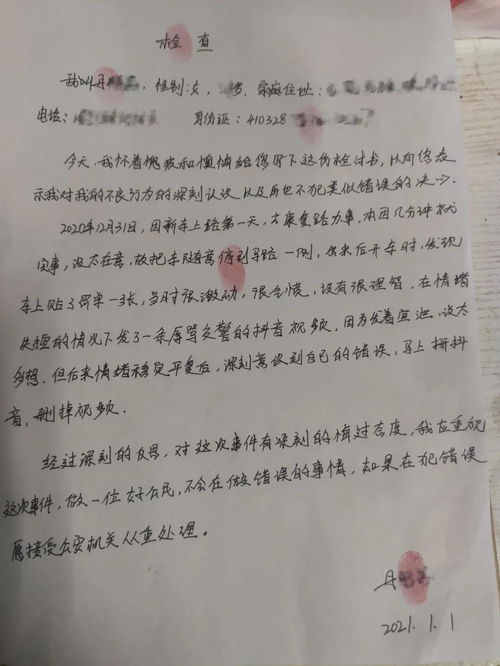 检查
我叫丹 , 性别:女, 岁, 家庭住址:
电话:1 身份证: 410328
今天,我怀着愧疚和懊悔给您写下这份检讨书,以向您表
示我对我的不良行为的深刻认识以及再也不犯类似错误的决心.
2020年12月31日,因新车上路第一天,去康复路办事,本因几分钟就
完事,没太在意,故把车随意停到马路一侧,出来后开车时,发现
车上贴了罚单一张,当时很激动,很气愤,没有很理智,在情绪
失控的情况下发了一条辱骂交警的抖音视频,因为发着宣泄,没太
多想.但后来情绪稳定平复后,深刻意识到自己的错误,马上 抖
音,删掉视频.
经过深刻的反思,对这次事件有深刻的悔过态度,我应重视
这次事件,做一位好公民,不会在做错误的事情,如果在犯错误
愿接受公安机关从重处理。
丹
2021.1.1